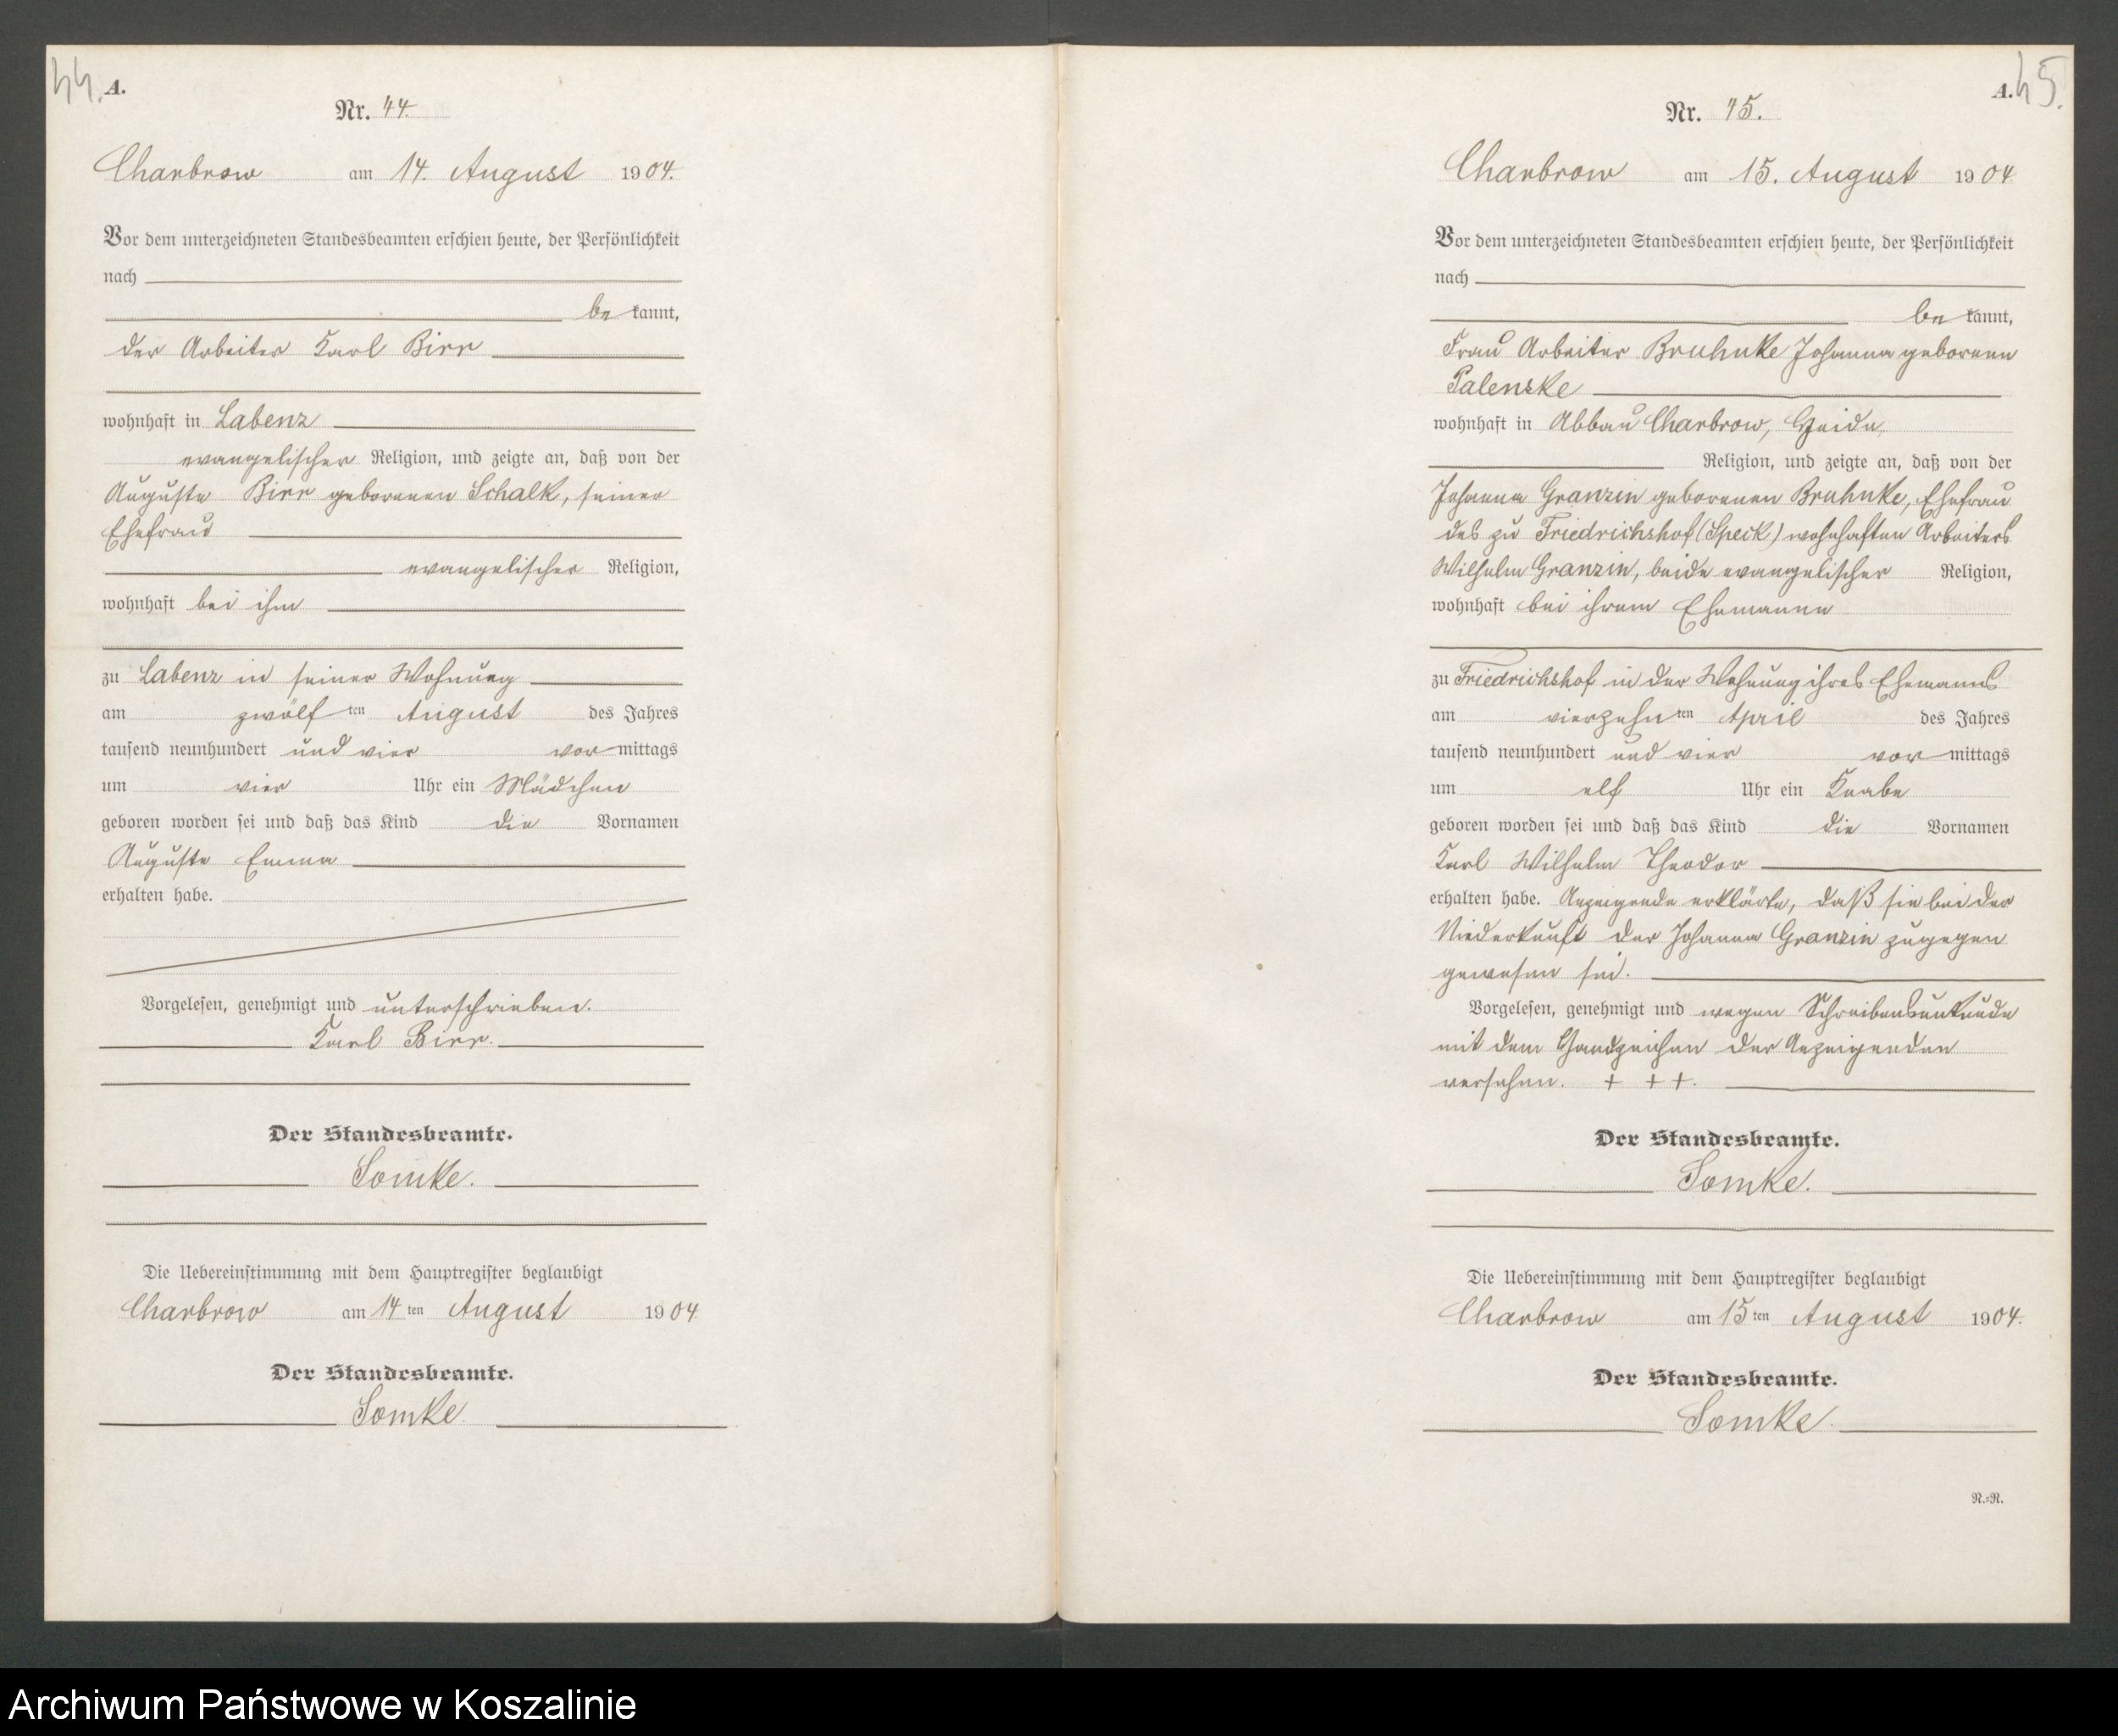 44.
A.
Nr. 44.
Charbrow am 14. August 1904.
Vor dem unterzeichneten Standesbeamten erschien heute, der Persönlichkeit
nach
be kannt,
der Arbeiter Karl Birr
wohnhaft in Labenz
evangelischer Religion, und zeigte an, daß von der
Auguste Birr geborenen Schalk, seiner
Ehefrau
evangelischer Religion,
wohnhaft bei ihm
zu Labenz in seiner Wohnung
am zwölf ten August des Jahres
tausend neunhundert und vier vor mittags
um vier Uhr ein Mädchen
geboren worden sei und daß das Kind die Vornamen
Auguste Emma
erhalten habe.
Vorgelesen, genehmigt und unterschrieben.
Karl Birr.
Der Standesbeamte.
Somke.
Die Uebereinstimmung mit dem Hauptregister beglaubigt
Charbrow am 14 ten August 1904.
Der Standesbeamte.
Somke.
A.
45.
Nr. 45.
Charbrow am 15. August 1904.
Vor dem unterzeichneten Standesbeamten erschien heute, der Persönlichkeit
nach
be kannt,
Frau Arbeiter Bruhnke Johanna geborene
Palenske
wohnhaft in Abbau Charbrow, Heide,
Religion, und zeigte an, daß von der
Johanna Granzin geborenen Bruhnke, Ehefrau
des zu Friedrichshof (Speck) wohnhaften Arbeiters
Wilhelm Granzin, beide evangelischer Religion,
wohnhaft bei ihrem Ehemanne
zu Friedrichshof in der Wohnung ihres Ehemanns
am vierzehn ten April des Jahres
tausend neunhundert und vier vor mittags
um elf Uhr ein Knabe
geboren worden sei und daß das Kind die Vornamen
Karl Wilhelm Theodor
erhalten habe. Anzeigende erklärte, daß sie bei der
Niederkunft der Johanna Granzin zugegen
gewesen sei.
Vorgelesen, genehmigt und wegen Schreibensunkunde
mit dem Handzeichen der Anzeigenden
versehen. + + +.
Der Standesbeamte.
Somke.
Die Uebereinstimmung mit dem Hauptregister beglaubigt
Charbrow am 15 ten August 1904.
Der Standesbeamte.
Somke.
R.=R.
Archiwum Państwowe w Koszalinie